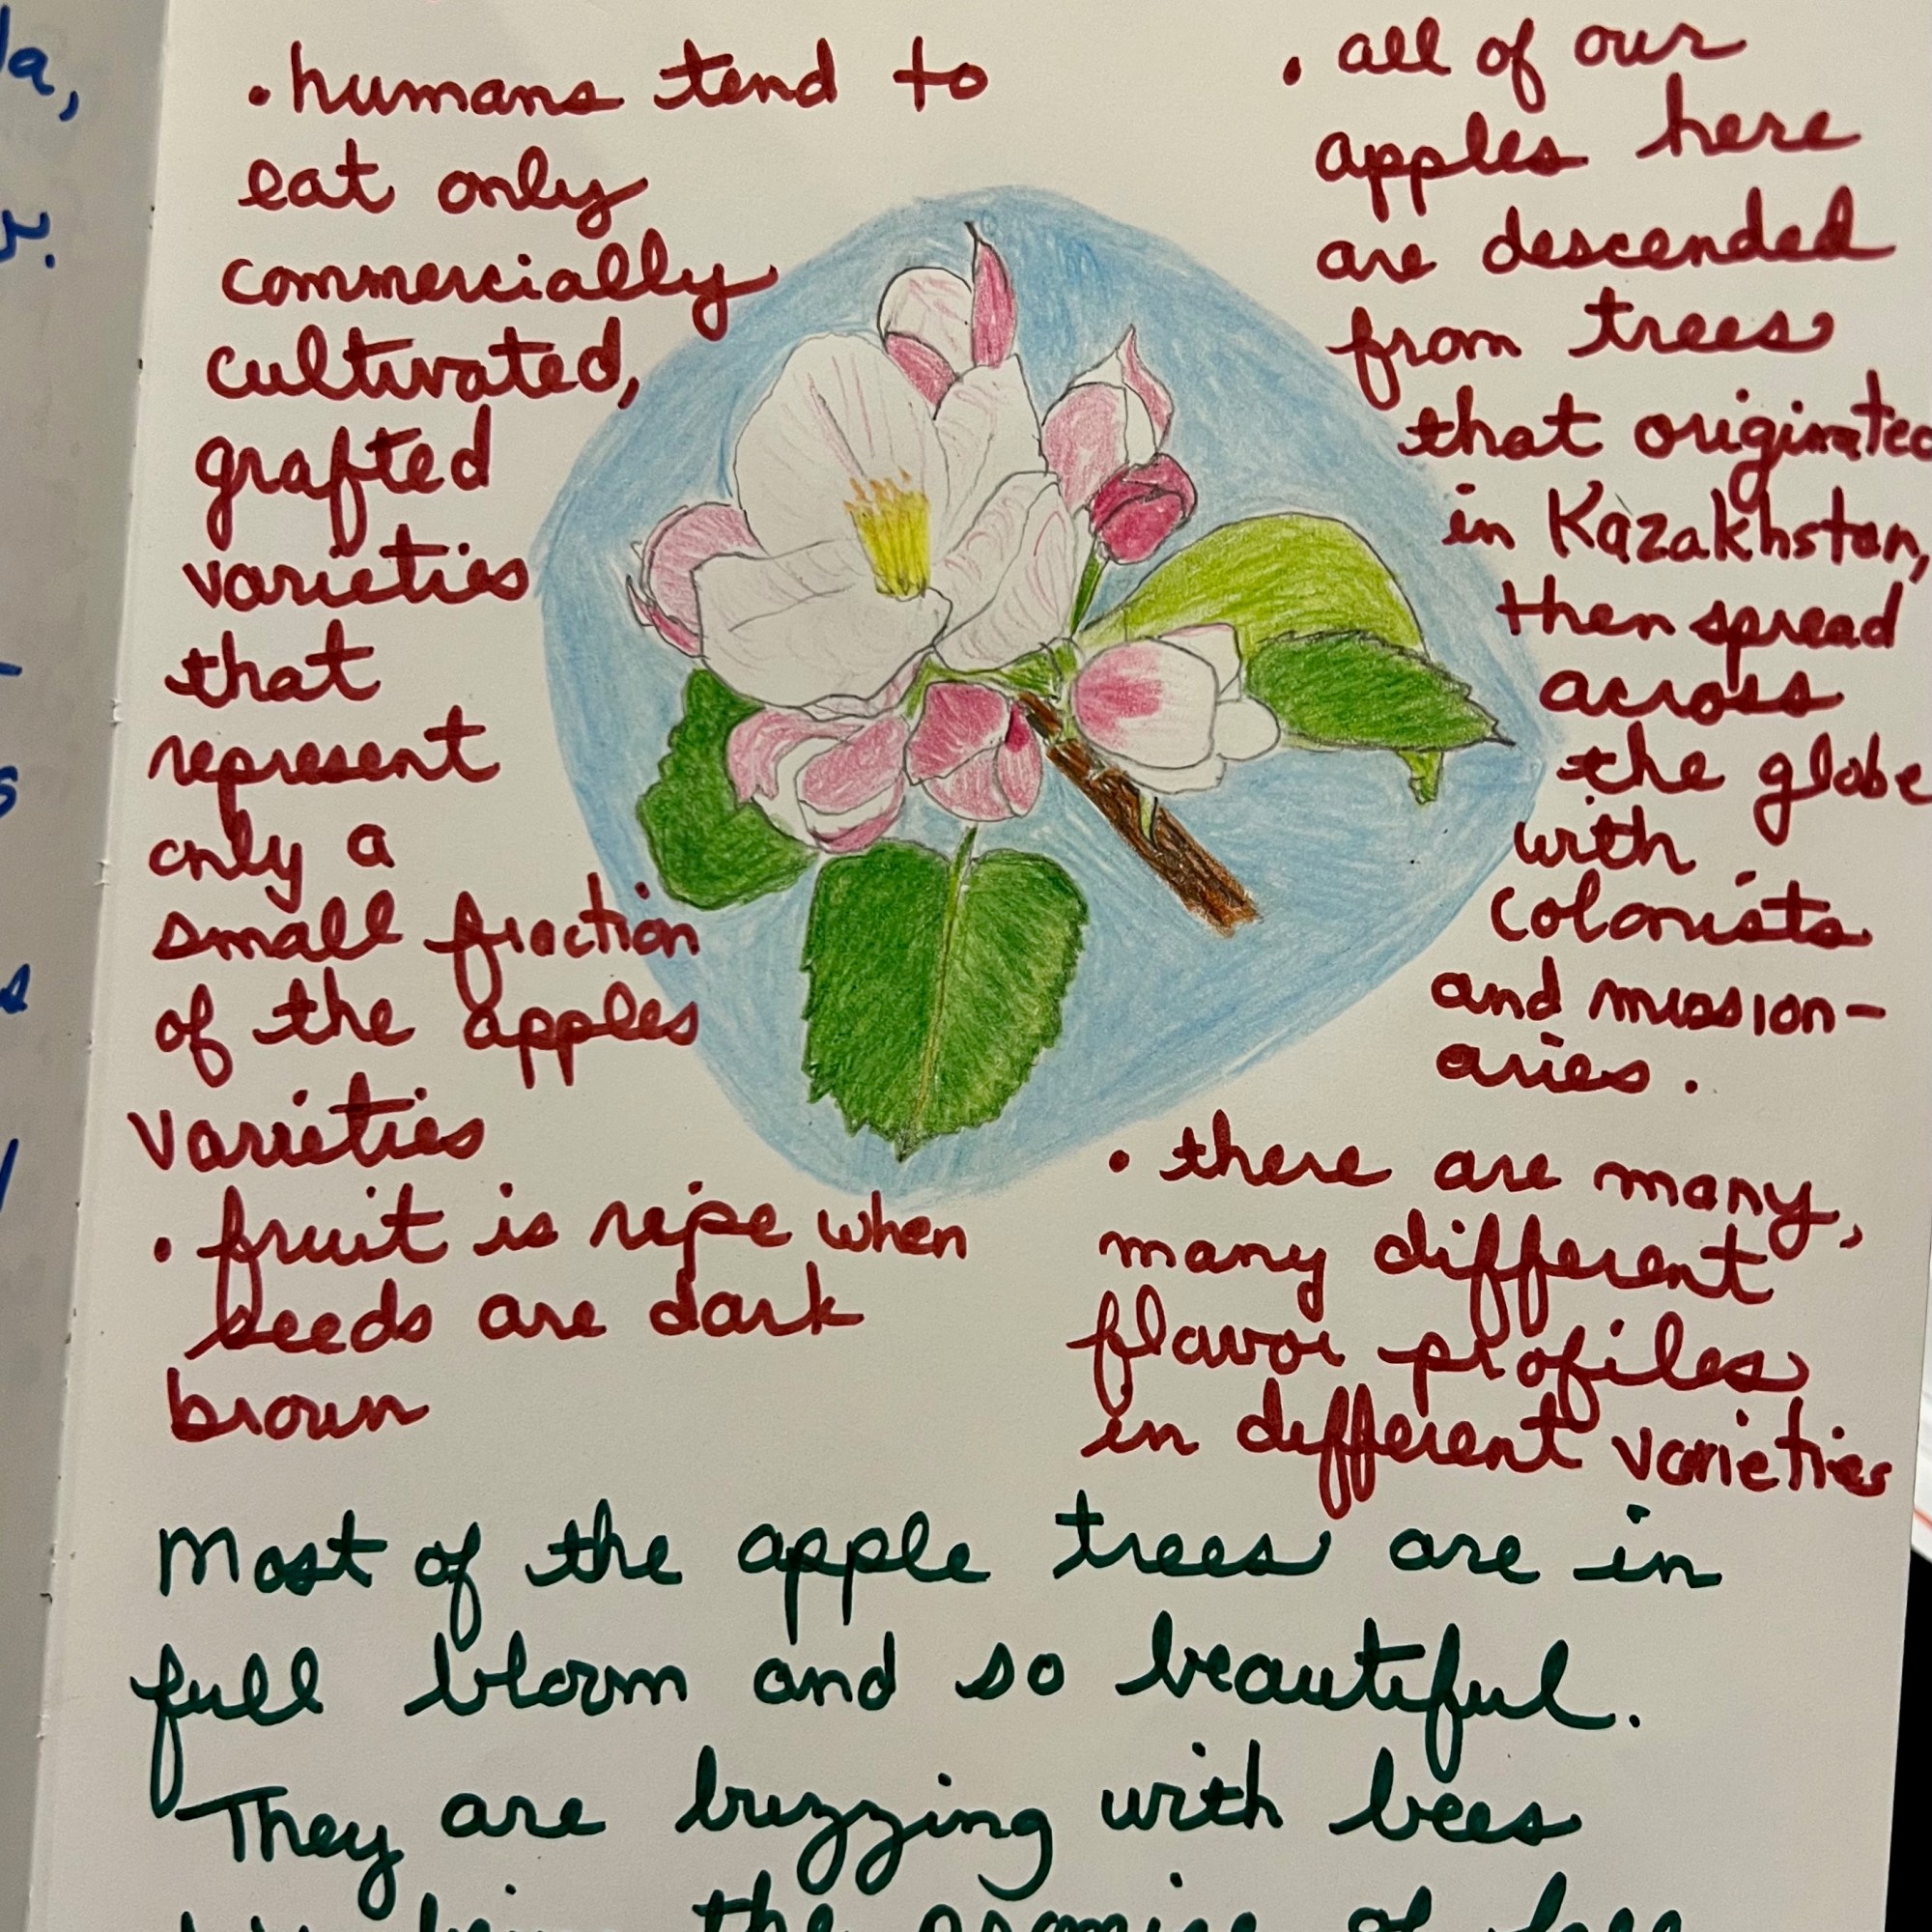 • humans tend to
eat only
commercially
cultivated,
grafted
varieties
that
represent
only a
small fraction
of the apples
varieties
• fruit is ripe when
seeds are dark
brown
• all of our
apples here
are descended
from trees
that originated
in Kazakhstan,
then spread
across
the globe
with
colonists
and mission-
aries.
• there are many,
many different
flavor profiles
in different varieties
Most of the apple trees are in
full bloom and so beautiful.
They are buzzing with bees
the promise of